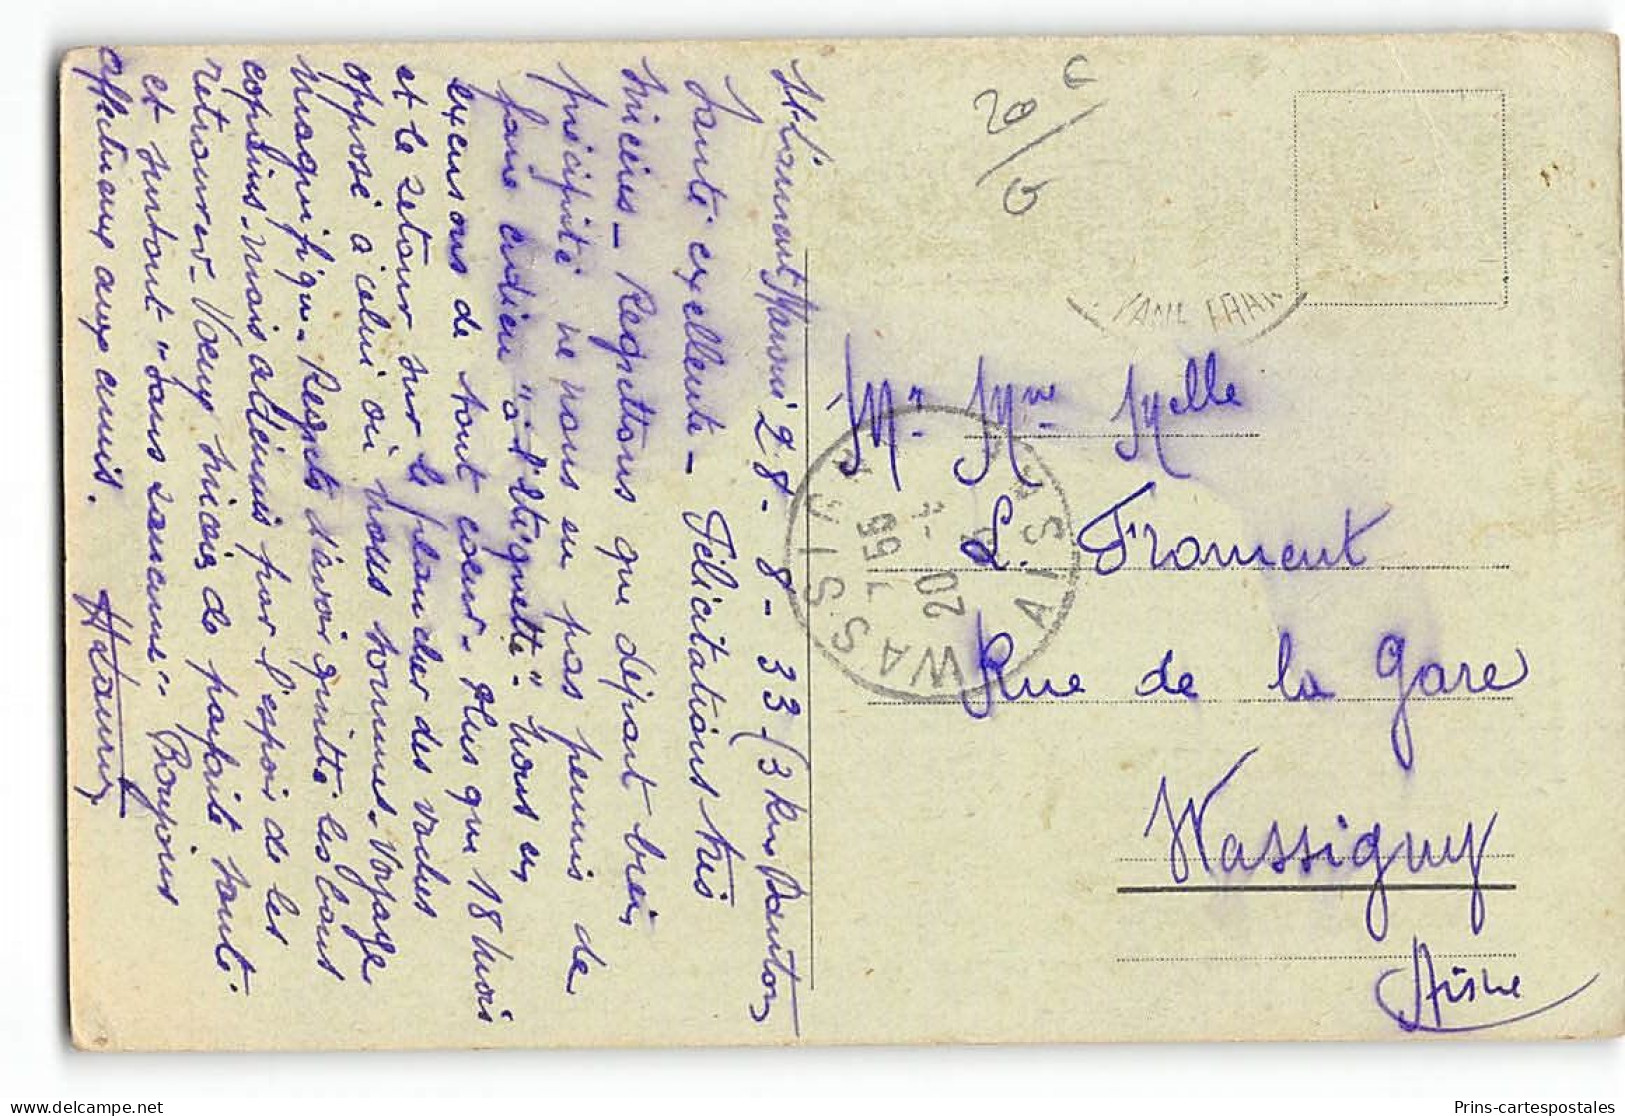 St Laurent Maroni 28-8-33 (3 km Canton
Santé excellente - Félicitations très
sincères - Regrettons que départ très
précipité ne nous en pas permis de
faire adieu "à l'étiquette" nous en
excusons de tout cœur - Plus que 18 mois
et le retour sur le plancher des vaches
opposé à celui où nous sommes. Voyage
magnifique. Regrets d'avoir quitté les bons
copains - mais atténués par l'espoir de les
retrouver - Vœux sincères de parfaite santé
et surtout "sans rancune". Bonjours
affectueux aux amis.
20 c
Mr. Mme Melle
L. Froment
Rue de la Gare
Wassigny
Aisne
WASSIGNY
7 55
20 - 9
33
AISNE
GUYANE FRAN
Prins-cartespostales